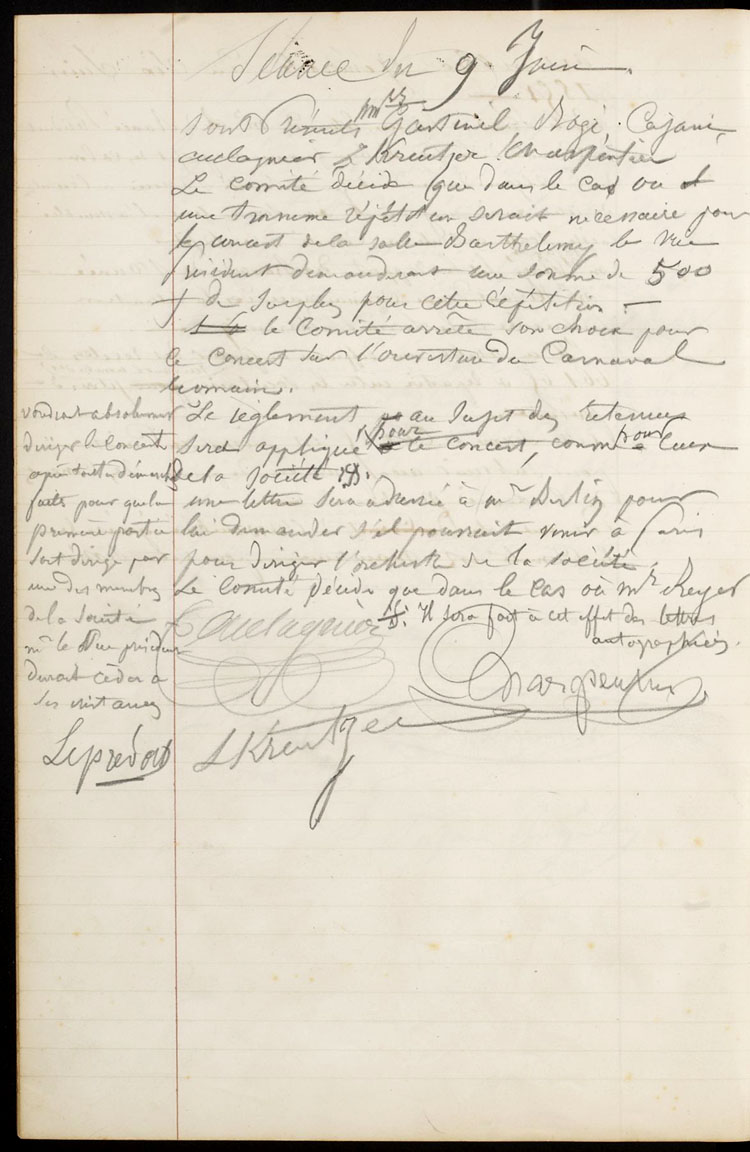 Séance du 9 Juin
sont présents MMrs Gastinel Rogé, Cajani,
Aulagnier L Kreutzer Charpentier
Le Comité décide que dans le cas ou
une troisieme répétition serait necessaire pour
le concert de la salle Barthelemy le vice
Président demanderait une somme de 500
f de surplus pour cette répétition. —
le Comité arrête son choix pour
ce concert sur l'ouverture du Carnaval
Romain.
Le règlement au sujet des retenues
sera appliqué pour le concert, comme pour ceux
de la société
une lettre sera adressée à Mr Berlioz pour
lui demander s'il pourrait venir à Paris
pour diriger l'orchestre de la société
Le Comité décide que dans le cas où Mr Reyer
Il sera fait à cet effet des lettres
autographiées.
voudrait absolument
diriger le Concert
après toutes démarches
faites pour que la
première partie
soit dirigé par
un des membres
de la Société
Mr le Vice président
devrait céder à
ses instances
Aulagnier
Charpentier
Leprévost L Kreutzer